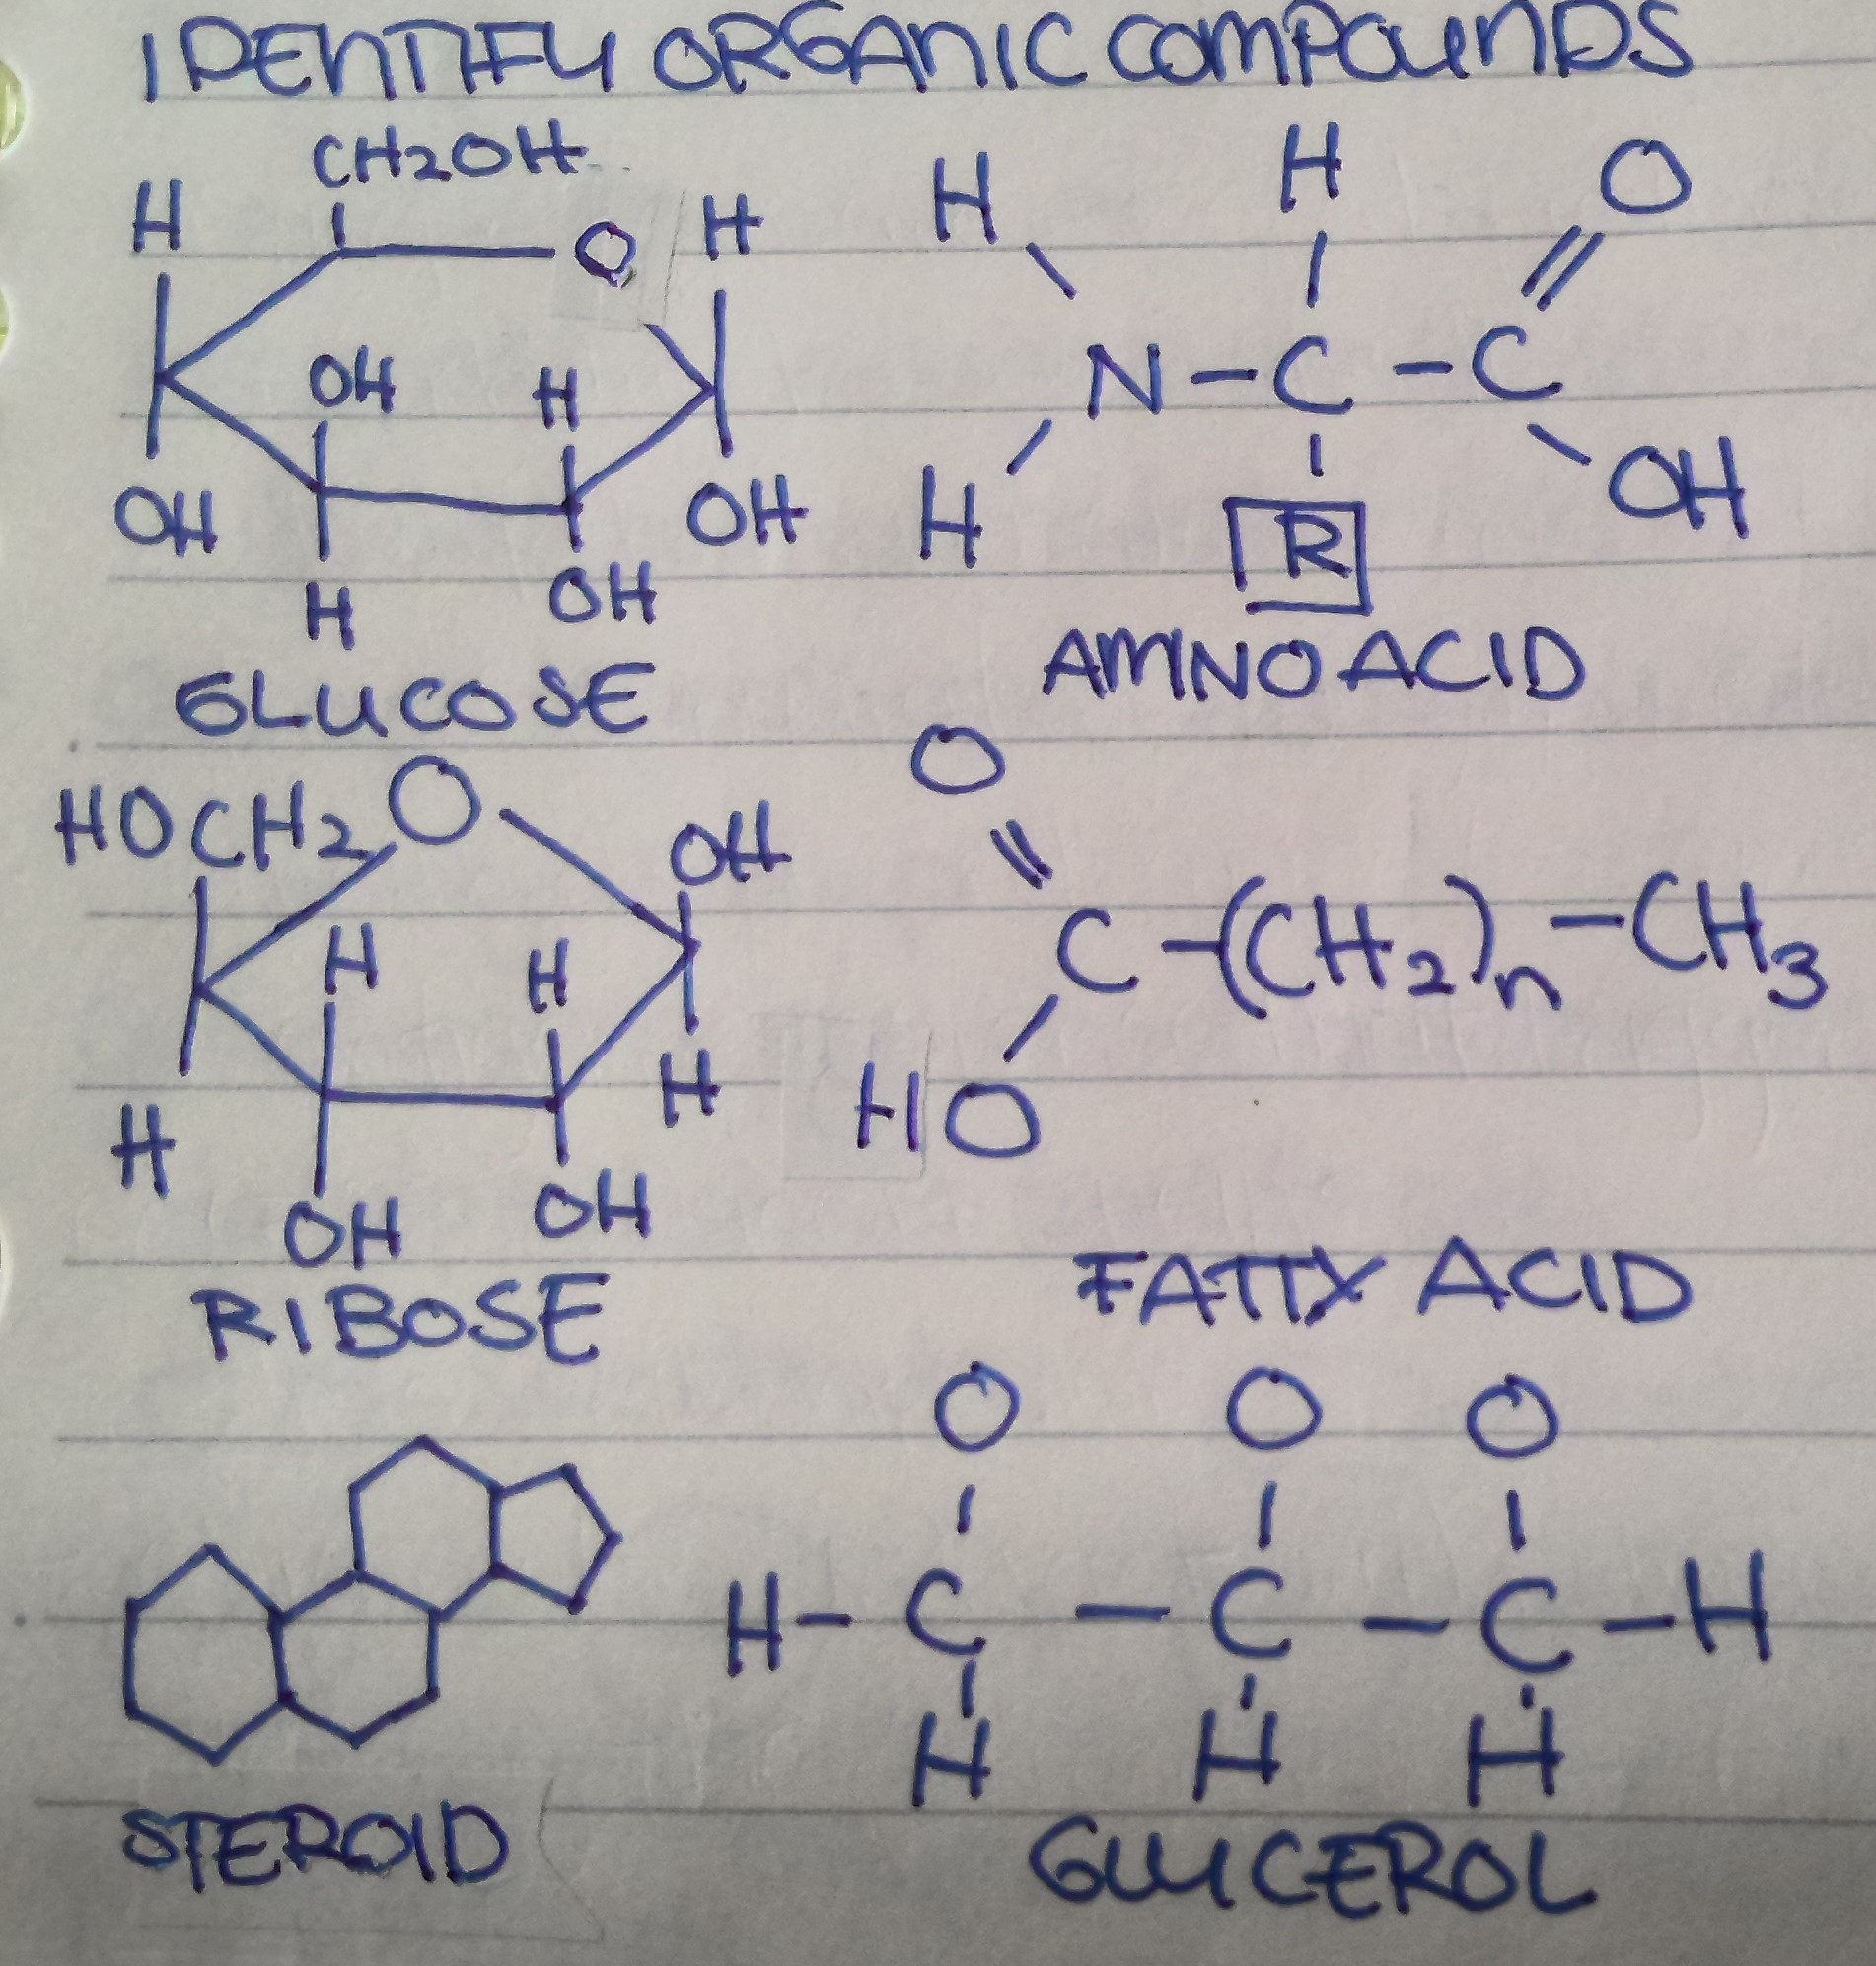 IDENTIFY ORGANIC COMPOUNDS
CH2OH
H O H
OH H
OH OH
H OH
GLUCOSE
H H O
N - C - C
H R OH
AMINO ACID
HOCH2 O OH
H H
H H
OH OH
RIBOSE
O
C-(CH2)n-CH3
HO
FATTY ACID
STEROID
O O O
H-C - C - C-H
H H H
GLYCEROL